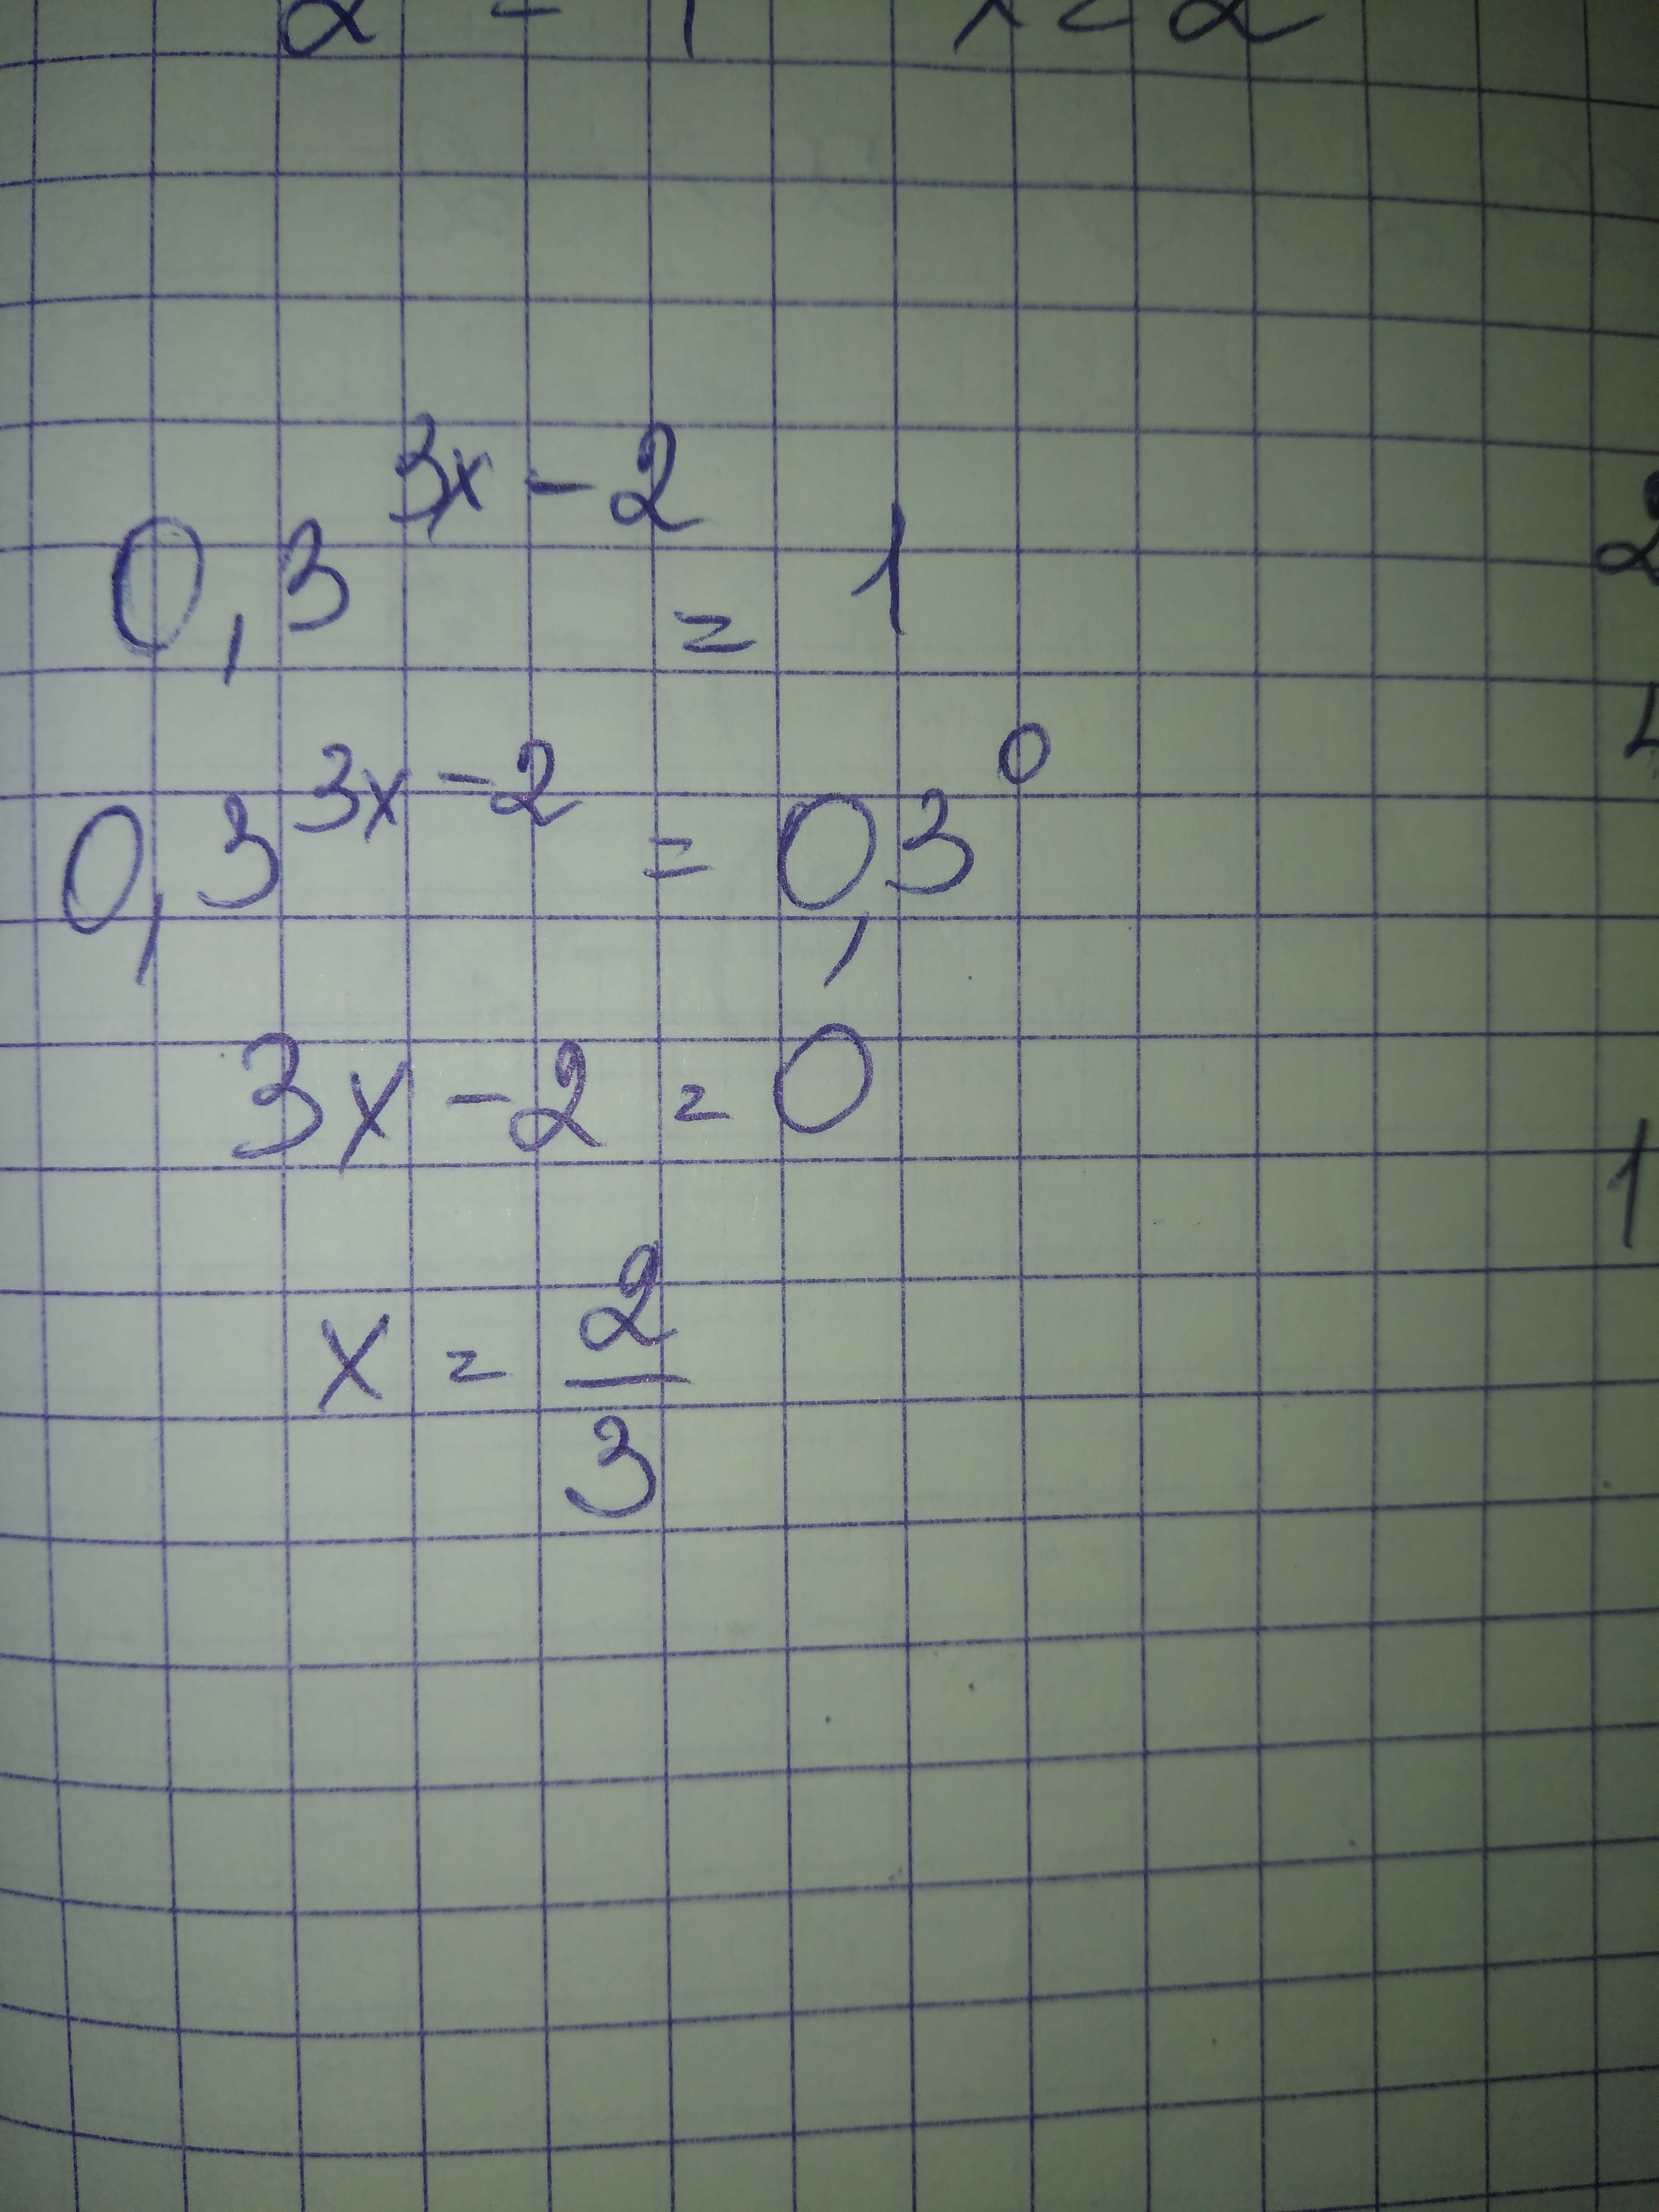 0,3^{3x-2} = 1
0,3^{3x-2} = 0,3^0
3x - 2 = 0
x = \frac{2}{3}